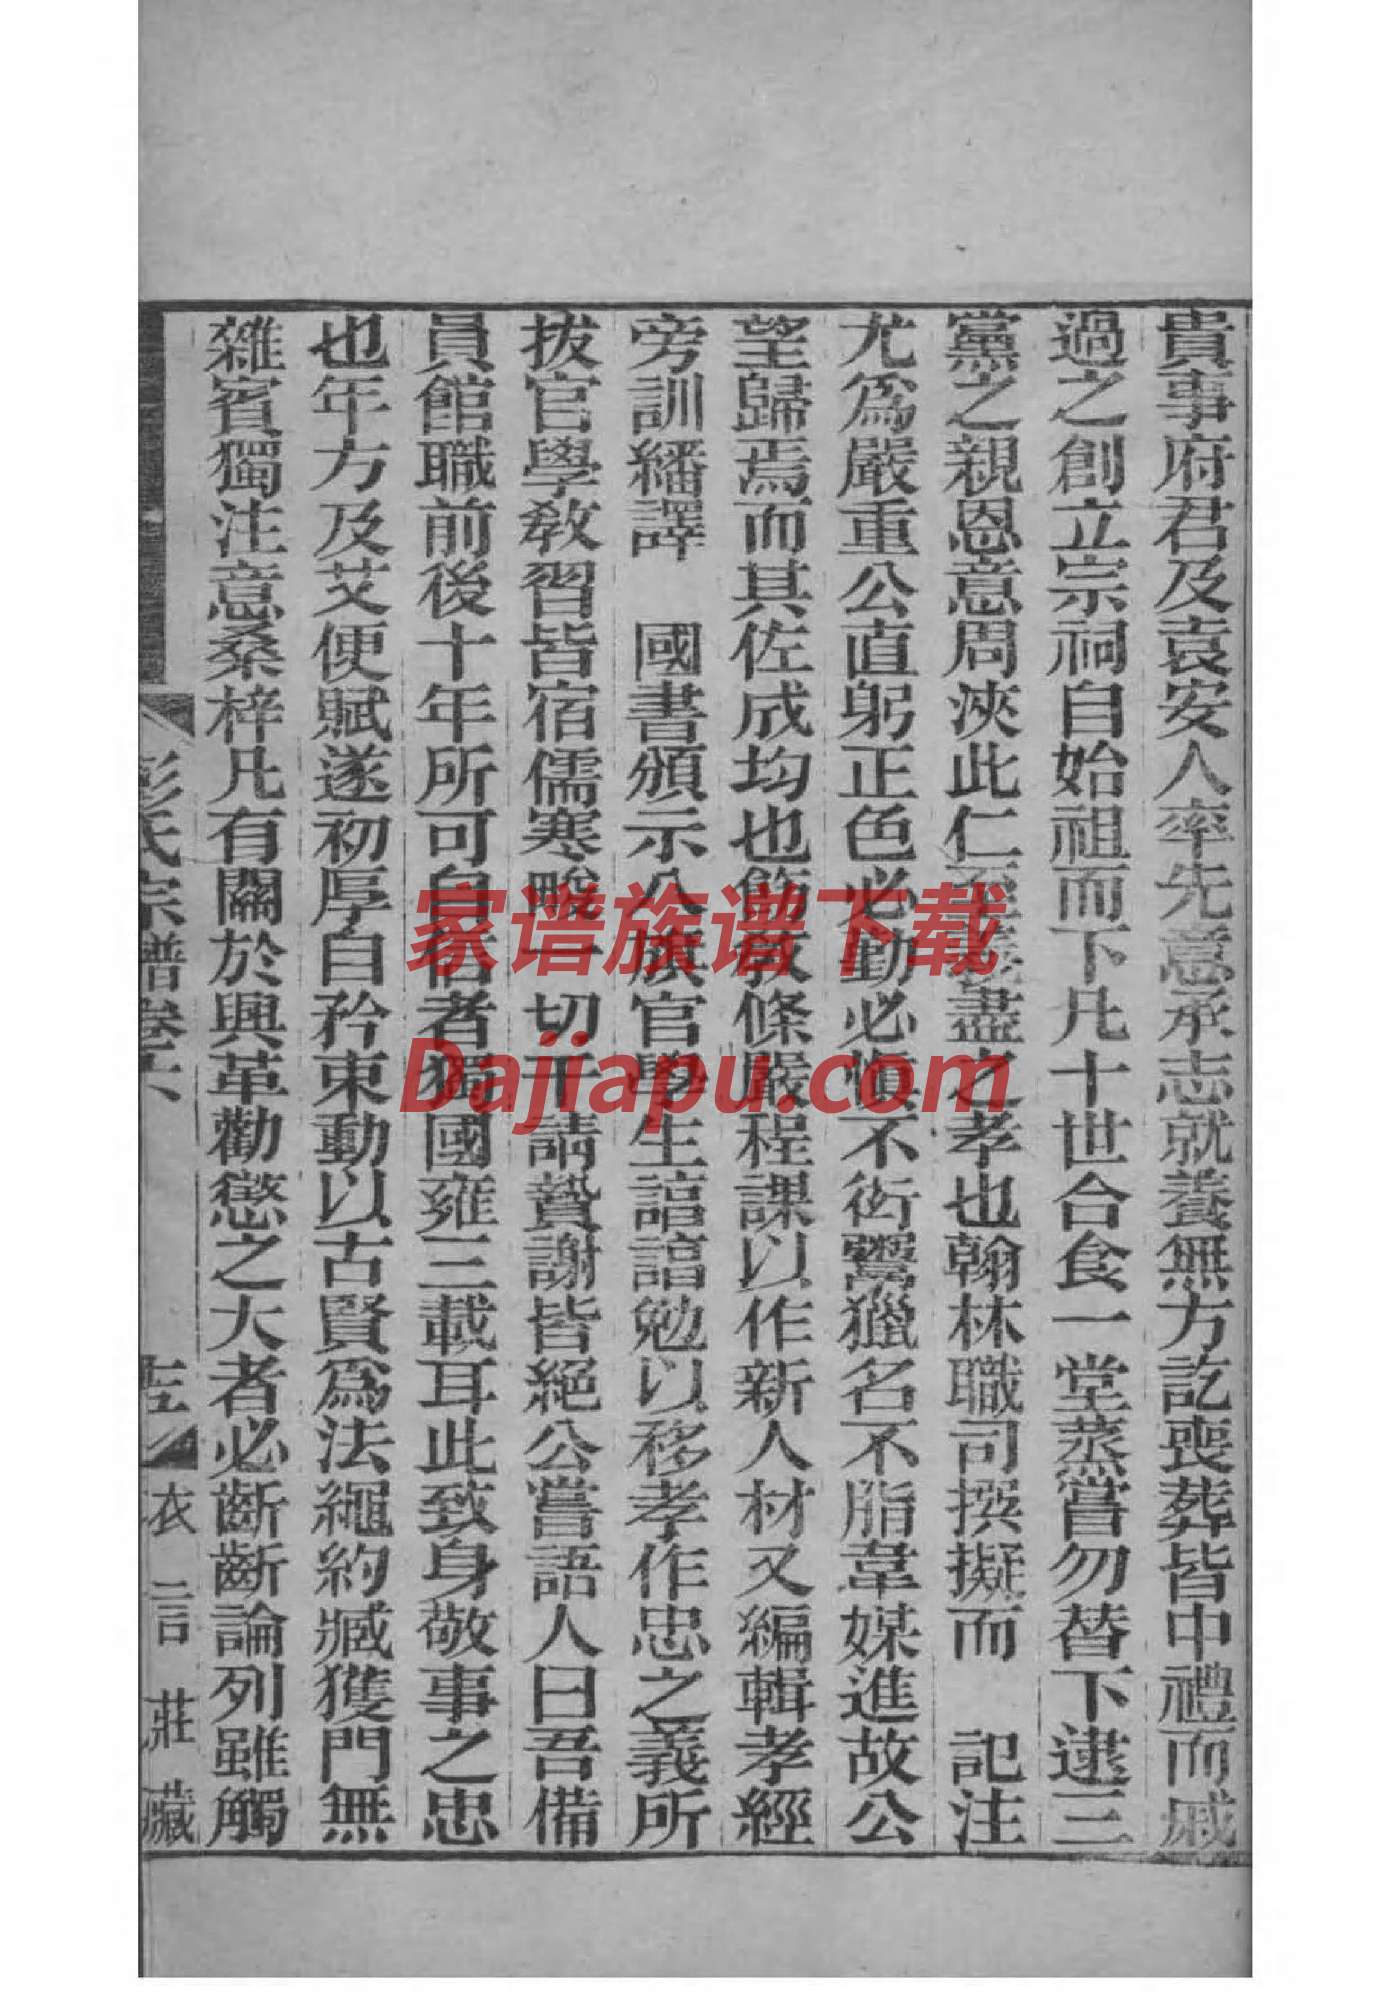 貴事府君及袁安人率先意承志就養無方訖喪葬皆中禮而戚
過之創立宗祠自始祖而下凡十世合食一堂蒸嘗勿替下逮三
黨之親恩意周浹此仁至義盡之孝也翰林職司撰擬而　記注
尤為嚴重公直躬正色必勤必慎不衒鬻獵名不脂韋媒進故公
望歸焉而其佐成均也飭教條嚴程課以作新人材又編輯孝經
旁訓繙譯　國書頒示八旗官學生諳諳勉以移孝作忠之義所
拔官學教習皆宿儒寒畯一切干請贄謝皆絕公嘗語人曰吾備
員館職前後十年所可自信者獨國雍三載耳此致身敬事之忠
也年方及艾便賦遂初厚自矜束動以古賢為法繩約臧獲門無
雜賓獨注意桑梓凡有關於興革勸懲之大者必齗齗論列雖觸
彭氏宗譜卷六
衣言莊藏
家谱族谱下载
Dajiapu.com